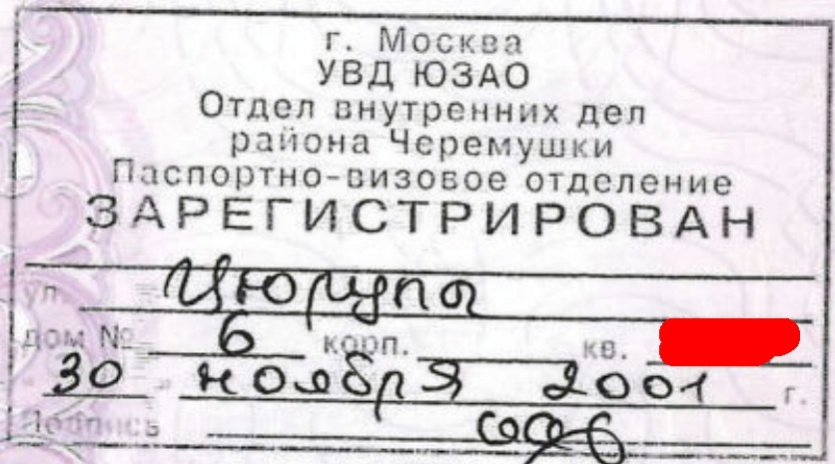 г. Москва
УВД ЮЗАО
Отдел внутренних дел
района Черемушки
Паспортно-визовое отделение
ЗАРЕГИСТРИРОВАН
ул. Цюрупы
дом № 6 корп. кв.
" 30 " ноября 2001 г.
Подпись